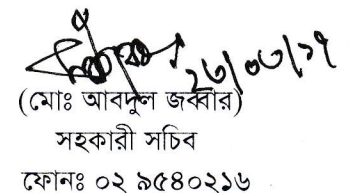 (মোঃ আবদুল জব্বার)
সহকারী সচিব
ফোনঃ ০২ ৯৫৪০২১৬